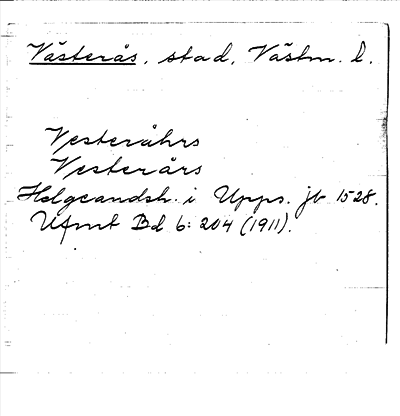 Västerås, stad, Västm. l.
Vesteråhrs
Vesterårs
Helgeandsh. i Upps. jb 1528.
Ufmt Bd 6: 204 (1911).